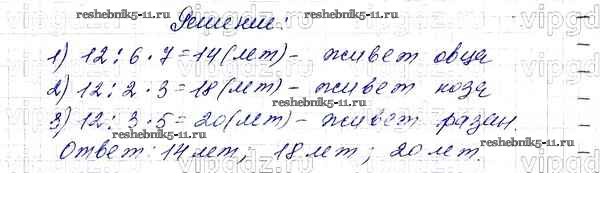 Решение:
1) 12:6·7=14(лет)- живет овца
2) 12:2·3=18(лет)- живет коза
3) 12:3·5=20(лет)- живет фазан.
Ответ: 14 лет; 18 лет; 20 лет.
reshebnik5-11.ru
reshebnik5-11.ru
reshebnik5-11.ru
reshebnik5-11.ru
reshebnik5-11.ru
vipgdz.ru